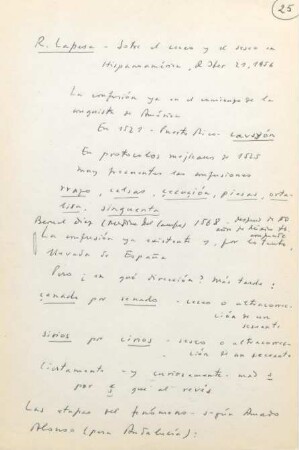 25
R. Lapesa - Sobre el ceceo y el seseo en
Hispanoamérica, R Iber 21, 1956
La confusión ya en el comienzo de la
conquista de América
En 1521 - Puerto Rico - 
En protocolos mejicanos de 1525
muy frecuentes las confusiones
calsas, piesas,
sinquenta
Bernal Díaz (Medina del Campo) 1568, después de 50
años de
La confusión ya existente y, por lo tanto,
llevada de España
Pero ¿en qué dirección? Más tarde:
cenado por senado - ceceo o ultracorrec-
ción de un
seseante
sirios por cirios - seseo o ultracorrec-
ción de un ceceante
Ciertamente - y curiosamente - más s
por ç que al revés
Las etapas del fenómeno - según Amado
Alonso (para Andalucía):